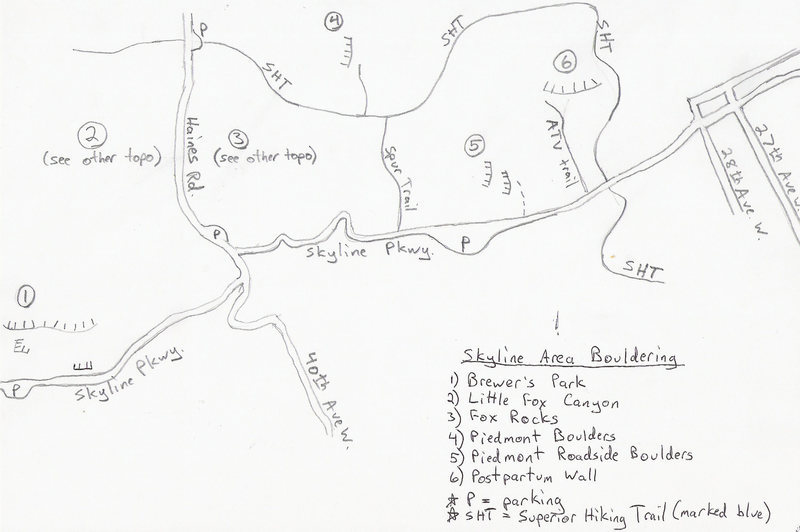 P
SHT
4
SHT
SHT
6
2
(see other topo)
Haines Rd.
3
(see other topo)
Spur Trail
5
ATV trail
27th Ave W.
28th Ave. W.
P
Skyline Pkwy.
P
SHT
1
P
Skyline Pkwy.
40th Ave W.
Skyline Area Bouldering
1) Brewer's Park
2) Little Fox Canyon
3) Fox Rocks
4) Piedmont Boulders
5) Piedmont Roadside Boulders
6) Postpartum Wall
☆ P = parking
☆ SHT = Superior Hiking Trail (marked blue)